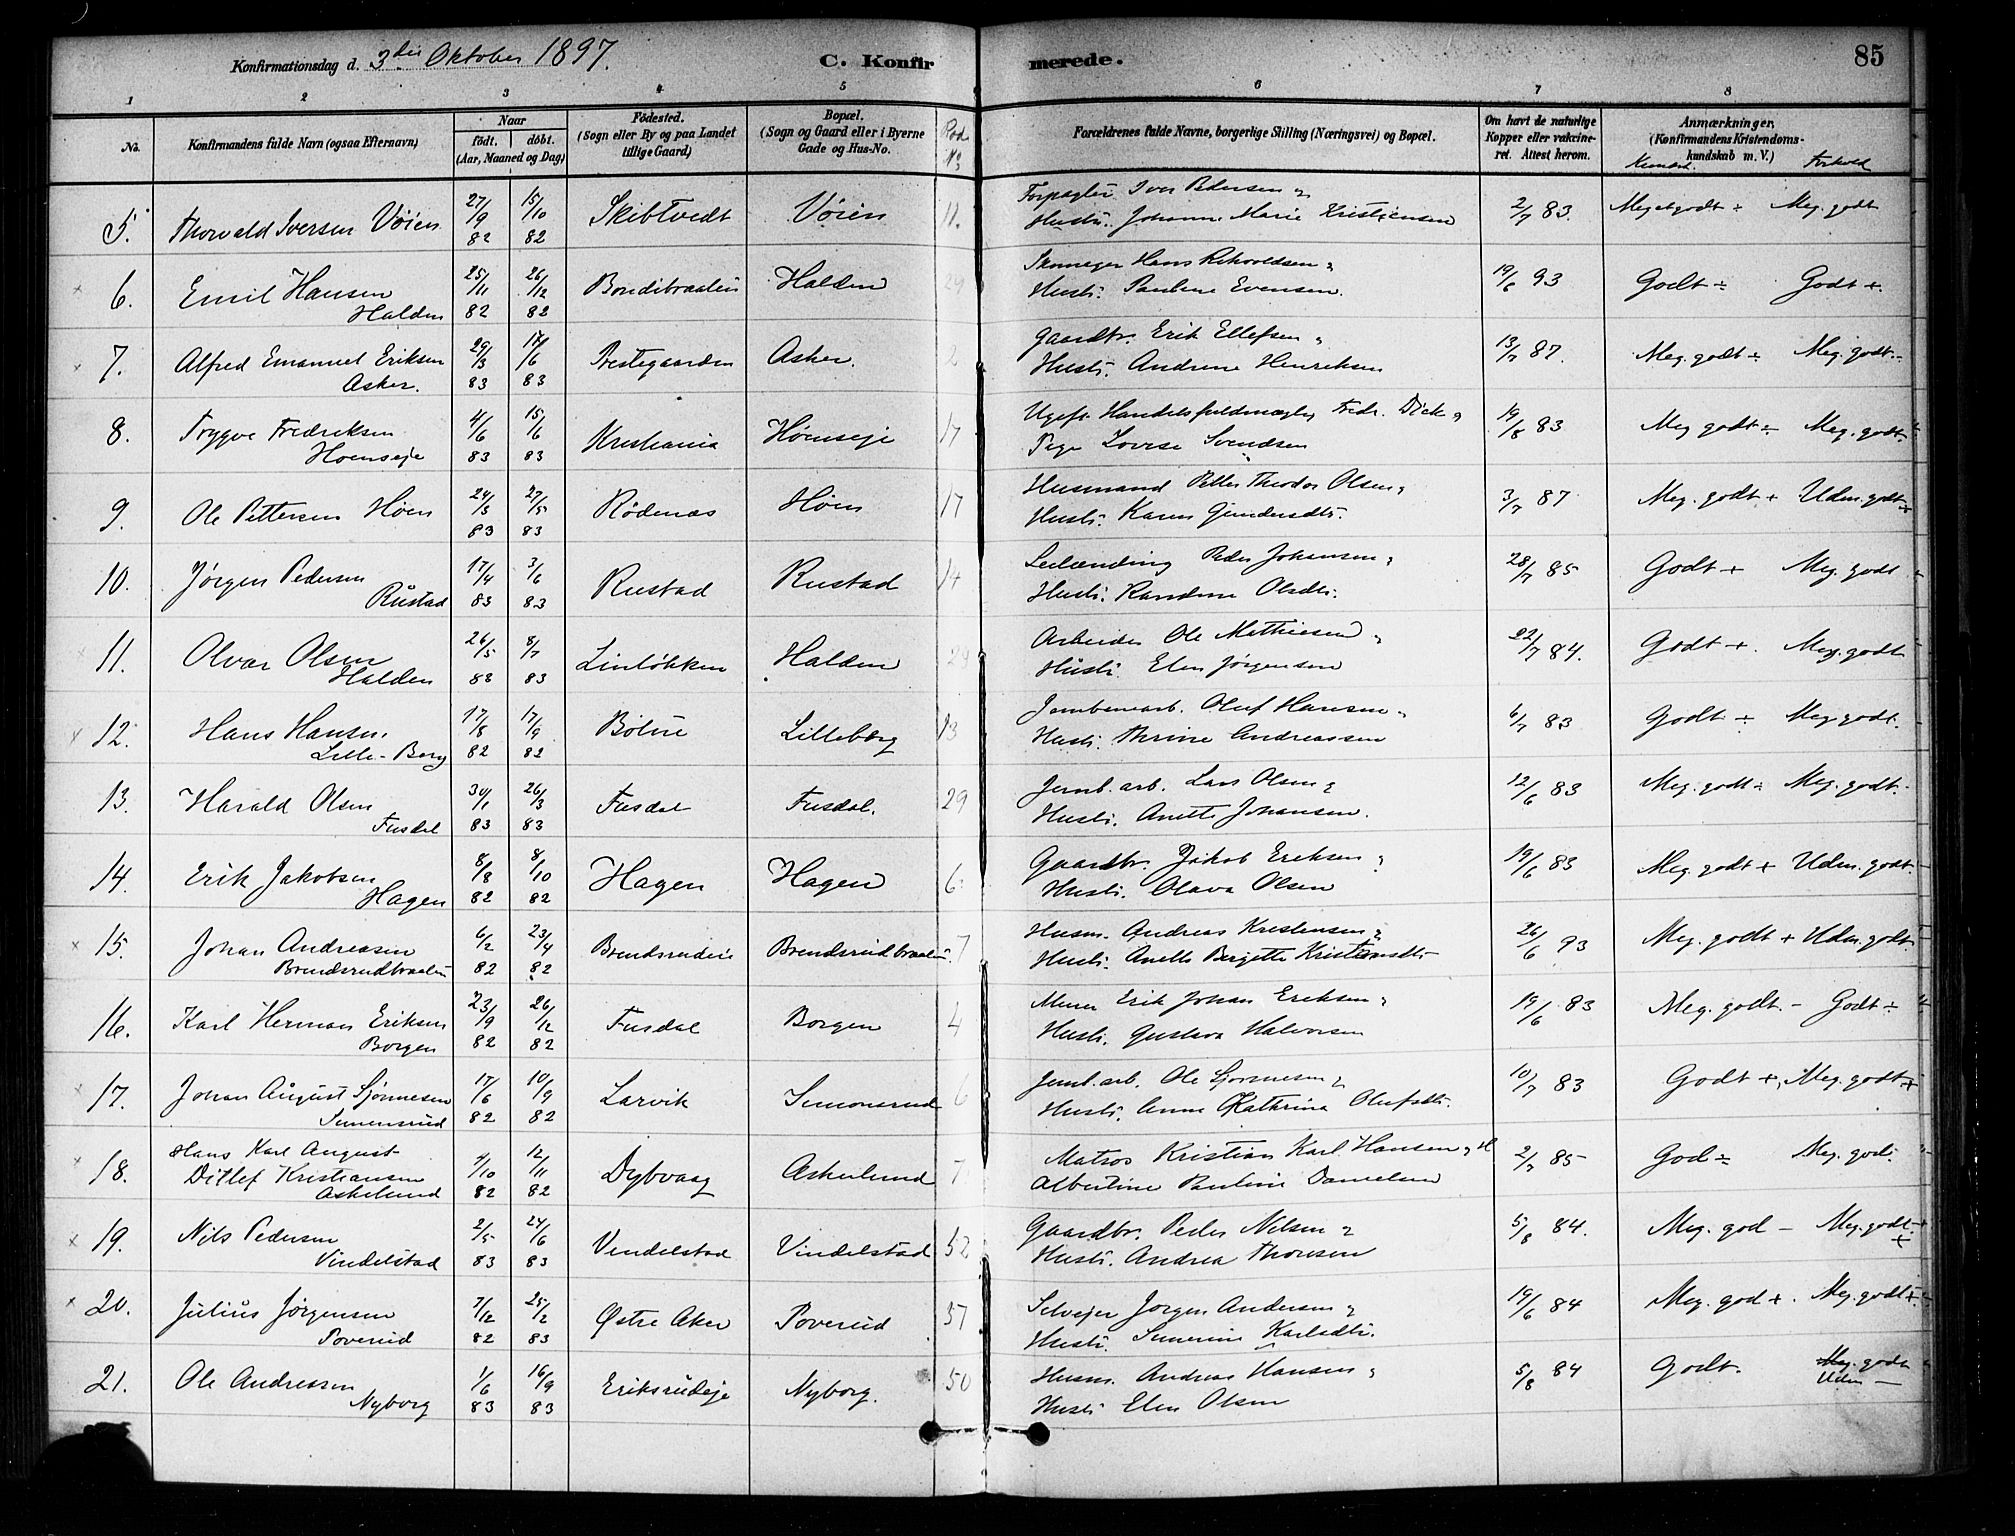 Konfirmationsdag d. 3die Oktober 1897.
C. Konfirmerede.
85
1 2 3 4 5 6 7 8
No.
Konfirmandens fulde Navn (ogsaa Efternavn)
Naar
født. døbt.
(Aar, Maaned og Dag)
Fødested.
(Sogn eller By og paa Landet tillige Gaard)
Bopæl.
(Sogn og Gaard eller i Byerne Gade og Hus-No.
Rod No
Forældrenes fulde Navne, borgerlige Stilling (Næringsvei) og Bopæl.
Om havt de naturlige Kopper eller vakcineret. Attest herom.
Anmærkninger,
(Konfirmandens Kristendomskundskab m. V.)
Kundsk. Forhold
5. Thorvald Iversen Vøien 27/9 82 15/10 82 Skibtvedt Vøien 11. Forpagter Iver Pedersen & Hustr. Johanne Marie Kristiensen 2/7 83. Meget godt ÷ Meg. godt
6. Emil Hansen Halden 25/11 82 26/12 82 Bondibraaten Halden 29 Skomager Hans Rihoroldsen & Hustr. Pauline Evensen. 19/6 93 Godt ÷ Godt +.
7. Alfred Emanuel Eriksen Asker. 29/3 83 17/6 83 Prestegaarden Asker. 2 Gaardbr. Erik Ellefsen & Hustr. Andrine Henriksen 13/7 87. Meg. godt ÷ Meg. godt.
8. Trygve Fredriksen Hoenseje 4/6 83 15/6 83 Kristiania Hønseje 17 Ugift Handelsfuldmægtig Fredr. Dick & Pige Lovise Svendsen 19/8 83 Meg godt ÷ Meg. godt.
9. Ole Pettersen Høen 24/3 83 27/5 83 Rødenæs Høn 17 Husmand Petter Theodor Olsen & Hustr. Karen Gundersdtr. 3/7 87 Meg. godt + Udm. godt
10. Jørgen Pedersen Rustad 17/4 83 3/6 83 Rustad Rustad 14 Leilænding Peder Johansen & Hustr. Randine Olsdtr. 28/7 85 Godt + Meg. godt
11. Olvar Olsen Halden 26/5 83 8/7 83 Linløkken Halden 29 Arbeider Ole Mathiesen & Hustr. Elen Jørgensen 22/7 84. Godt +. Meg. godt
12. Hans Hansen Lille-Borg 17/8 82 17/9 82 Bølire Lilleborg 13 Jernbanearb. Oluf Hansen & Hustr. Thrine Andreassen 6/7 83 Godt ÷ Meg godt.
13. Harald Olsen Fusdal 30/1 83 26/3 83 Fusdal Fusdal. 29 Jernb. arb. Lars Olsen & Hustr. Anette Johansen. 12/6 83 Meg. godt ÷ Meg. godt.
14. Erik Jakobsen Hagen 8/8 82 8/10 82 Hagen Hagen 6 Gaardbr. Jakob Eriksen & Hustr. Olava Olsen 19/6 83 Meg. godt + Udm. godt.
15. Johan Andreasen Brendsrudbraaten 6/2 82 23/4 82 Brendsrudeie Brendsrudbraaten. 7 Husm. Andreas Kristensen & Hustr. Anette Bergitte Kristiansdtr 26/6 93 Meg. godt + Udm. godt.
16. Karl Herman Eriksen Borgen 23/9 82 26/12 82 Fusdal Borgen 4 Murer Erik Johan Eriksen & Hustr. Gustava Halvorsen 19/6 83 Meg. godt. - Godt ÷
17. Johan August Sjønnesen Simensrud 17/6 82 10/9 82 Larvik Simonsrud 6 Jernb. arb. Ole Sjønnesen & Hustr. Anne Kathrina Olufsdtr. 10/7 83 Godt +, Meg. godt +
18. Hans Karl August Ditlef Kristiansen Askelund 4/10 82 12/11 82 Dybvaag Askelund 7 Matros Kristian Karl Hansen & H Albertine Pauline Danielsen 2/7 85 God ÷ Meg. godt.
19. Nils Pedersen Vindelstad 2/5 83 24/6 83 Vendelstad Vindelstad 52 Gaardbr. Peder Nilsen & Hustr. Andrea Thoresen 5/8 84. Meg. god - Meg. godt. +
20. Julius Jørgensen Poverud 7/12 82 25/2 83 Østre Aker Poverud 37 Selvejer Jørgen Andersen & Hustr. Simerine Karlsdtr. 19/6 84 Meg. god +. Meg. godt +.
21. Ole Andreasen Nyborg 1/6 83 16/9 83 Eriksrudeje Nyborg. 50 Husm. Andreas Hansen & Hustr Elen Olsen 5/8 84 Godt. Meg. godt Udm -